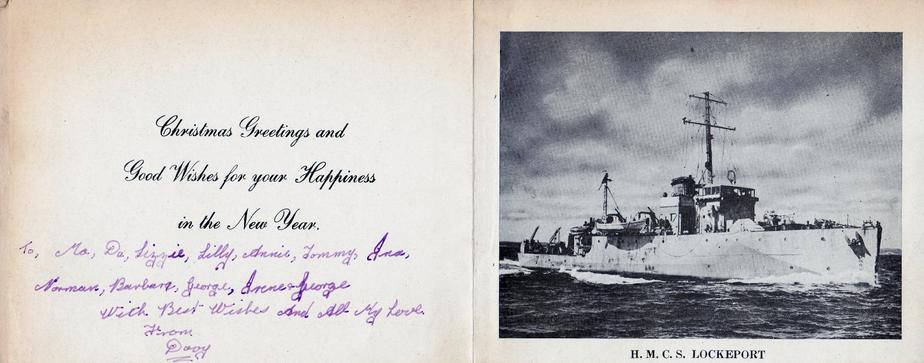 Christmas Greetings and
Good Wishes for your Happiness
in the New Year.
To, Ma, Da, Lizzie, Lilly, Annie, Tommy, Ina,
Norman, Barbara, George, Irene & George
With Best Wishes And All My Love.
From
Davy
H. M. C. S. LOCKEPORT